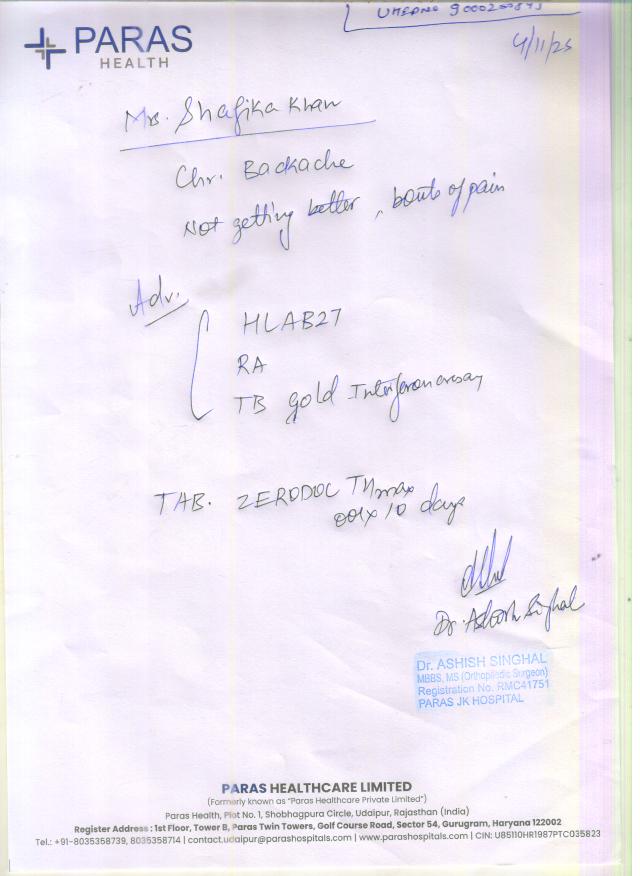 UHIDNO 9000200843
PARAS
HEALTH
4/11/25
Mrs. Shafika Khan
Chr. Backache
Not getting better, bouts of pain
Adv.
HLAB27
RA
TB gold Interferon assay
TAB. ZERODOL TH max
001 x 10 days
Dr. Ashish Singhal
Dr. ASHISH SINGHAL
MBBS, MS (Orthopaedic Surgeon)
Registration No. RMC41751
PARAS JK HOSPITAL
PARAS HEALTHCARE LIMITED
(Formerly known as "Paras Healthcare Private Limited")
Paras Health, Plot No. 1, Shobhagpura Circle, Udaipur, Rajasthan (India)
Register Address : 1st Floor, Tower B, Paras Twin Towers, Golf Course Road, Sector 54, Gurugram, Haryana 122002
Tel.: +91-8035358739, 8035358714 | contact.udaipur@parashospitals.com | www.parashospitals.com | CIN: U85110HR1987PTC035823